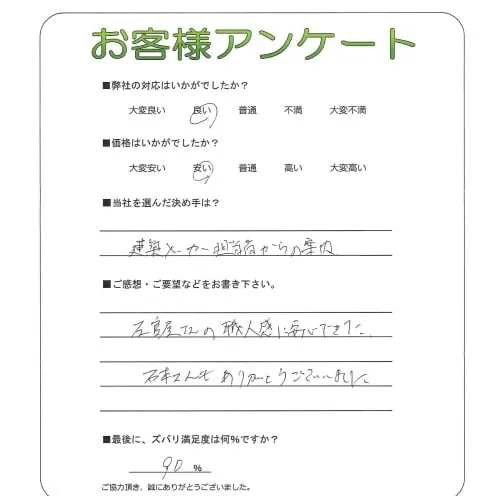 お客様アンケート
■弊社の対応はいかがでしたか？
大変良い 良い 普通 不満 大変不満
■価格はいかがでしたか？
大変安い 安い 普通 高い 大変高い
■当社を選んだ決め手は？
建築メーカー担当者からの案内
■ご感想・ご要望などをお書き下さい。
左官屋さんの職人感に安心できた。
石本さんも ありがとうございました
■最後に、ズバリ満足度は何%ですか？
90 %
ご協力頂き、誠にありがとうございました。